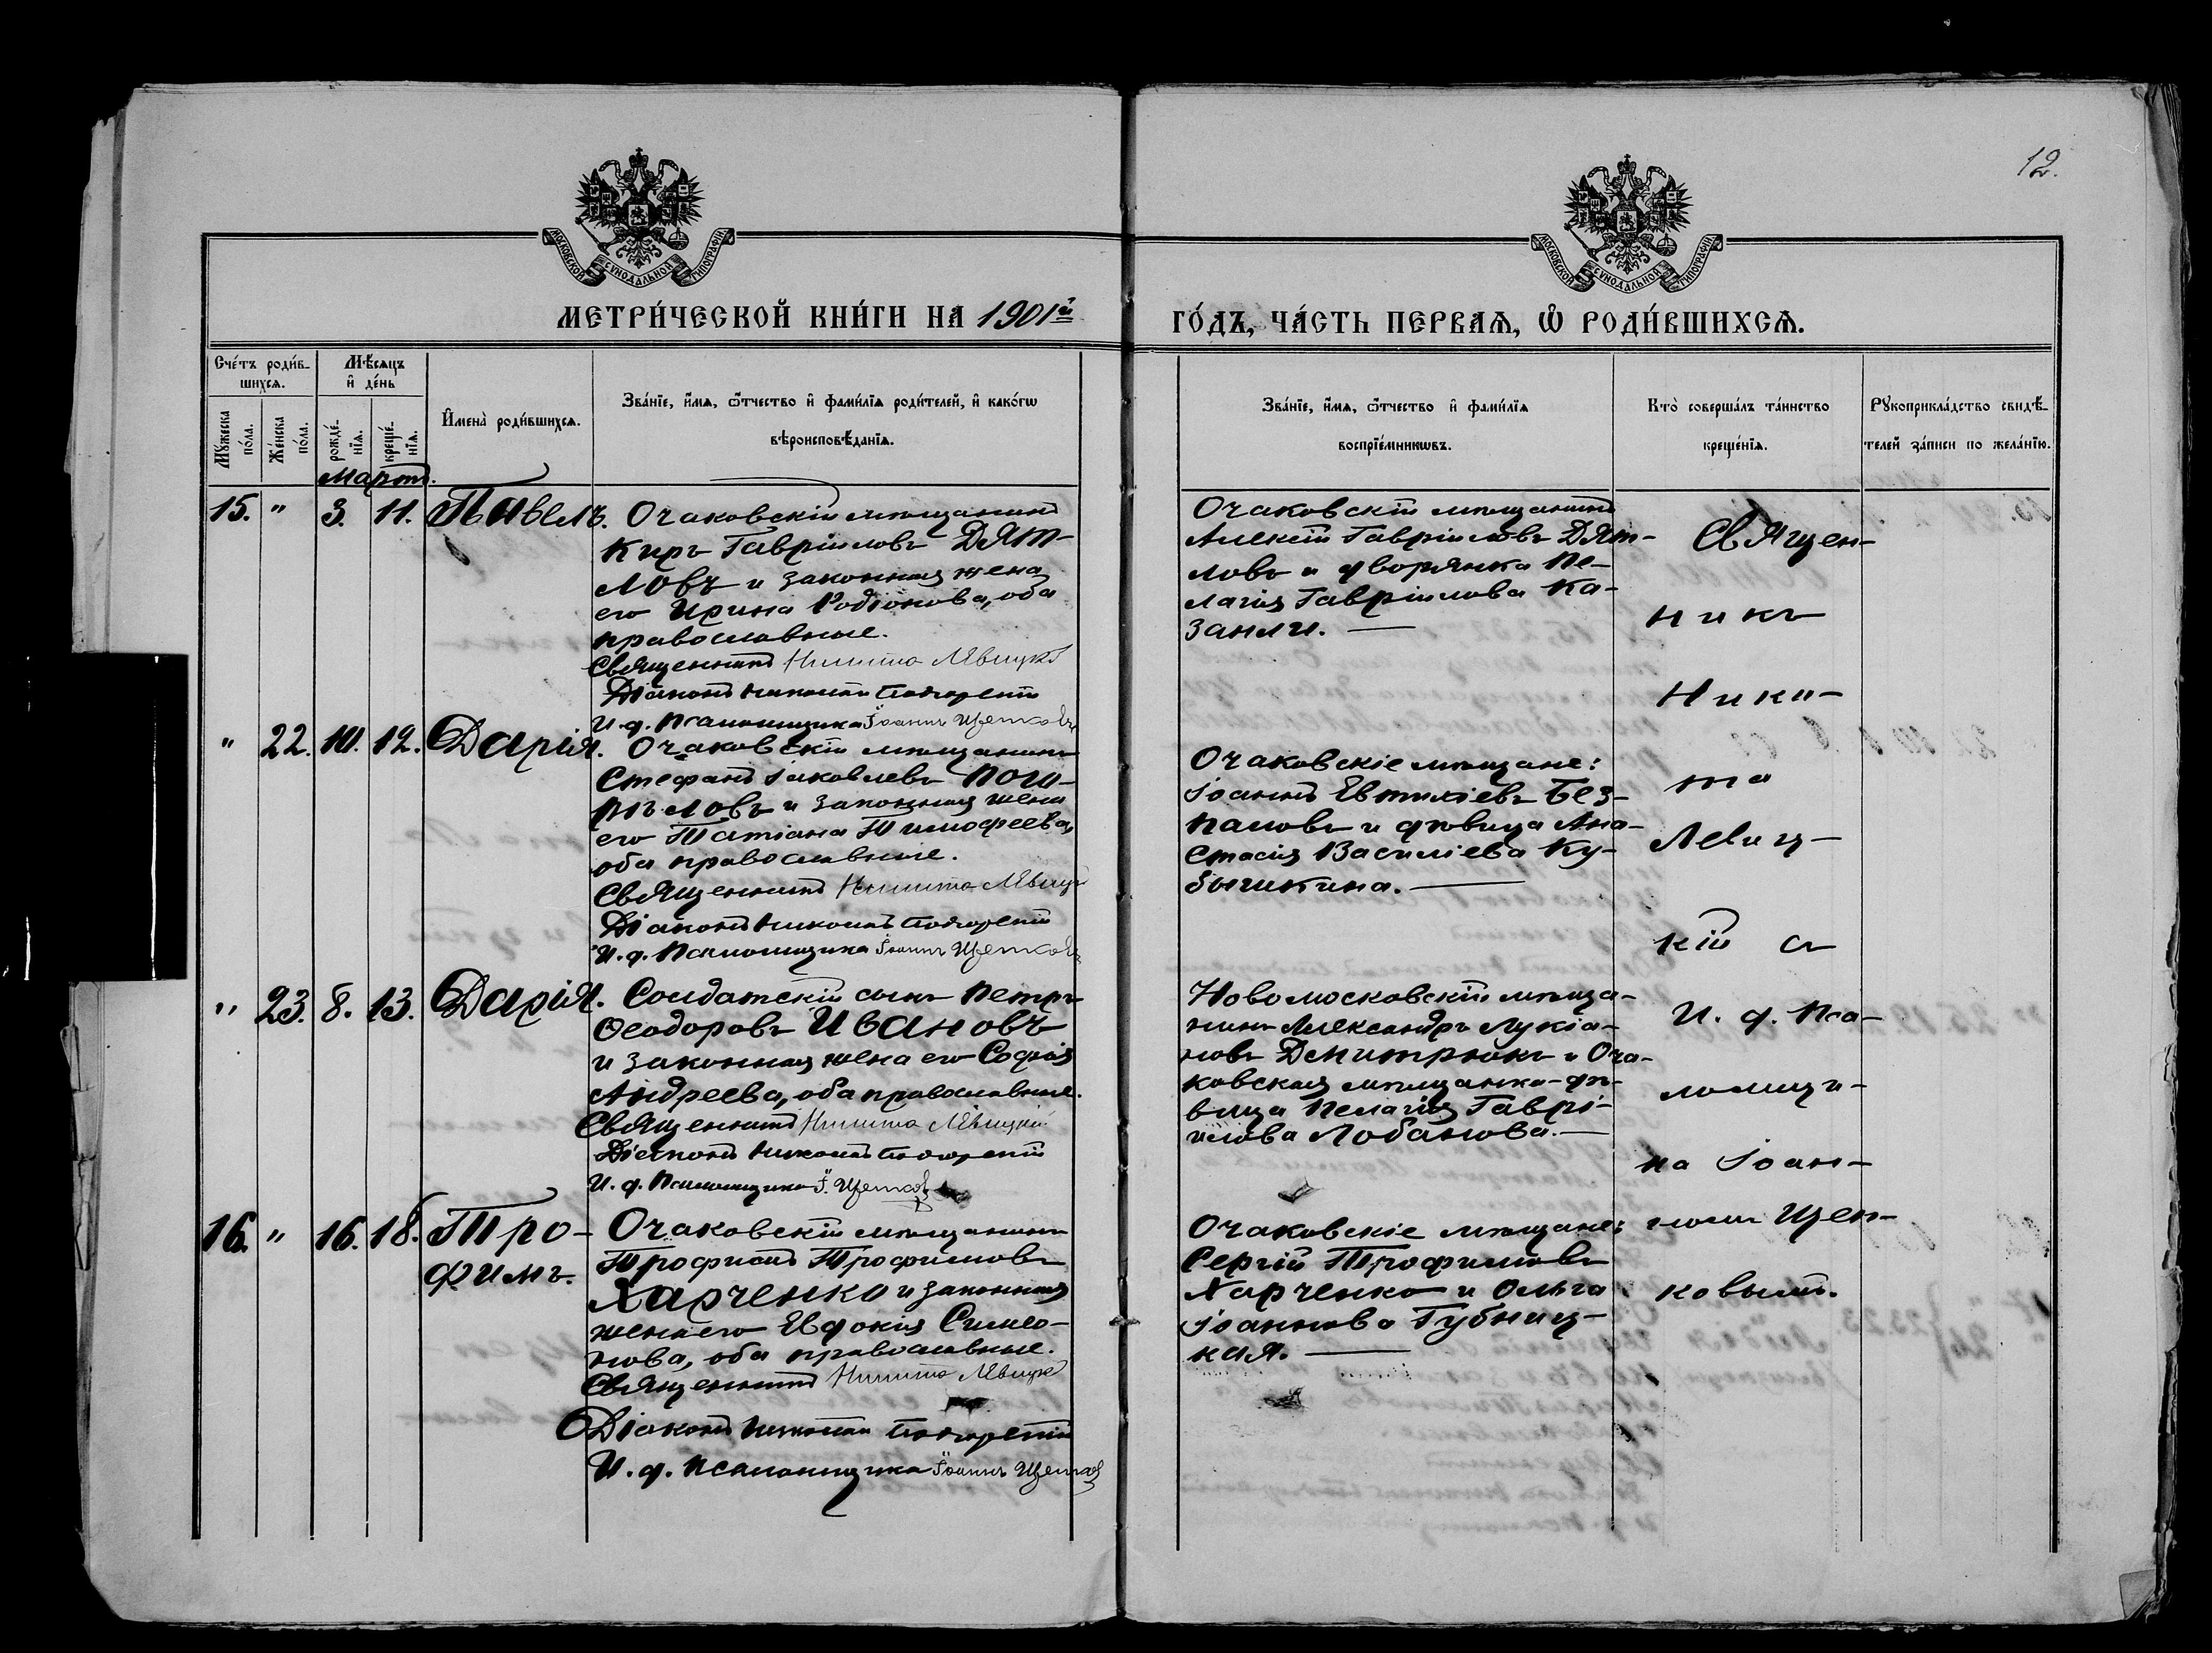 12.
МОСКОВСКОЙ СѴНОДАЛЬНОЙ ТИПОГРАФІИ
МОСКОВСКОЙ СѴНОДАЛЬНОЙ ТИПОГРАФІИ
МЕТРИ́ЧЕСКОЙ КНИ́ГИ НА 1901й
ГО́ДЪ, ЧА́СТЬ ПЕРВАѦ, Ѽ РОДИ́ВШИХСѦ.
Сче́тъ роди́в-
шихсѧ.
Мꙋжеска
по́ла.
Же́нска
по́ла.
Мѣ́сѧцъ
и҆ де́нь
рожде́-
нїѧ.
креще́-
нїѧ.
И҆мена̀ роди́вшихсѧ.
Зва́нїе, и҆́мѧ, ѻ҆́тчество и҆ фами́лїѧ роди́телей, и҆ како́гѡ
вѣроисповѣ́данїѧ.
Зва́нїе, и҆́мѧ, ѻ҆́тчество и҆ фами́лїѧ
воспрїе́мникѡвъ.
Кто̀ соверша́лъ та́инство
креще́нїѧ.
Рꙋкоприкла́дство свидѣ́-
телей за́писи по жела́нїю.
Мартъ.
15. " 3. 11. Павелъ. Очаковскій мѣщанинъ
Киръ Гавріиловъ Дят-
ловъ и законная жена
его Ирина Родіонова, оба
православные.
Священникъ Никита Левицкій
Діаконъ Николай
И. д. Псаломщика Іоаннъ Щетковъ
Очаковскій мѣщанинъ
Алексій Гавріиловъ Дят-
ловъ и дворянка Пе-
лагія Гавріилова Ка-
занли.
" 22. 10. 12. Дарія. Очаковскій мѣщанинъ
Стефанъ Іаковлевъ Пого-
рѣловъ и законная жена
его Татіана Тимофеева,
оба православные.
Священникъ Никита Левицкій
Діаконъ Николай
И. д. Псаломщика Іоаннъ Щетковъ
Очаковскіе мѣщане:
Іоаннъ Евтихіевъ Без-
паловъ и дѣвица Ана-
стасія Василіева Ку-
бышкина.
" 23. 8. 13. Дарія. Солдатскій сынъ Петръ
Ѳеодоровъ Ивановъ
и законная жена его Софія
Андреева, оба православные.
Священникъ Никита Левицкій
Діаконъ Николай
И. д. Псаломщика І. Щетковъ
Новомосковскій мѣща-
нинъ Александръ Лукіа-
новъ Дмитрюкъ и Оча-
ковская мѣщанка-дѣ-
вица Пелагія Гаврі-
илова Лобанова.
16. " 16. 18. Тро- Очаковскій мѣщанинъ
фимъ. Трофимъ Трофимовъ
Харченко и законная
жена его Евдокія Симео-
нова, оба православные.
Священникъ Никита Левицкій
Діаконъ Николай
И. д. псаломщика Іоаннъ Щетковъ
Очаковскіе мѣщане:
Сергій Трофимовъ
Харченко и Ольга
Іоаннова Губниц-
кая.
Священ-
никъ
Ники-
та
Левиц-
кій съ
И. д. Пса-
ломщи-
ка Іоан-
номъ Щет-
ковымъ.